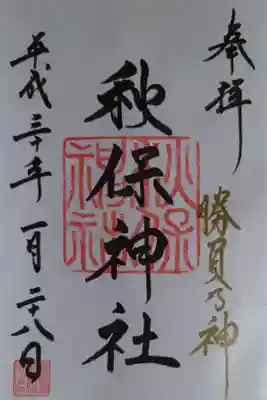 奉拝
勝負の神
秋保神社
秋保神社
平成三十年 一月 二十八日